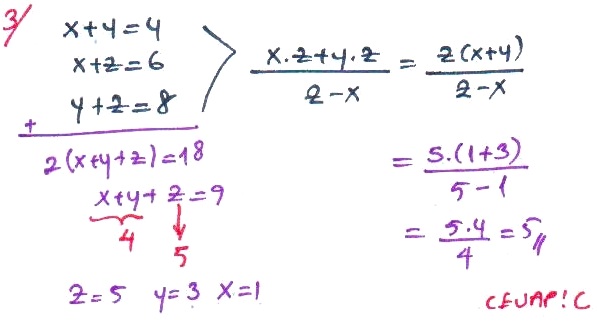 3/
x+y=4
x+z=6
y+z=8
+
2(x+y+z)=18
x+y+z=9
4
5
z=5 y=3 x=1
x.z+y.z / z-x = z(x+y) / z-x
= 5.(1+3) / 5-1
= 5.4 / 4 = 5//
CEVAP:C